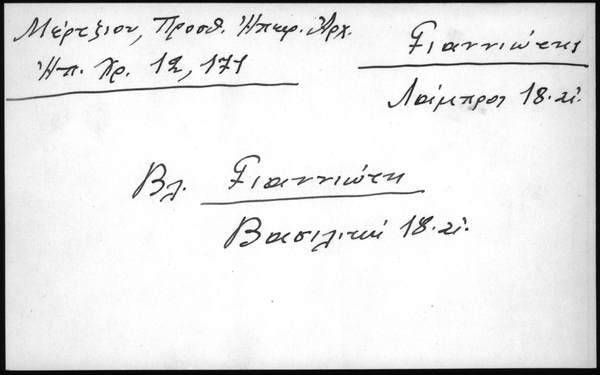 Μέρτζιου, Προσθ. Ἠπειρ. Ἀρχ.
Ἠπ. Χρ. 12, 171
Γιαννιώτης
Λάμπρος 18. αἰ.
Βλ. Γιαννιώτη
Βασιλική 18. αἰ.